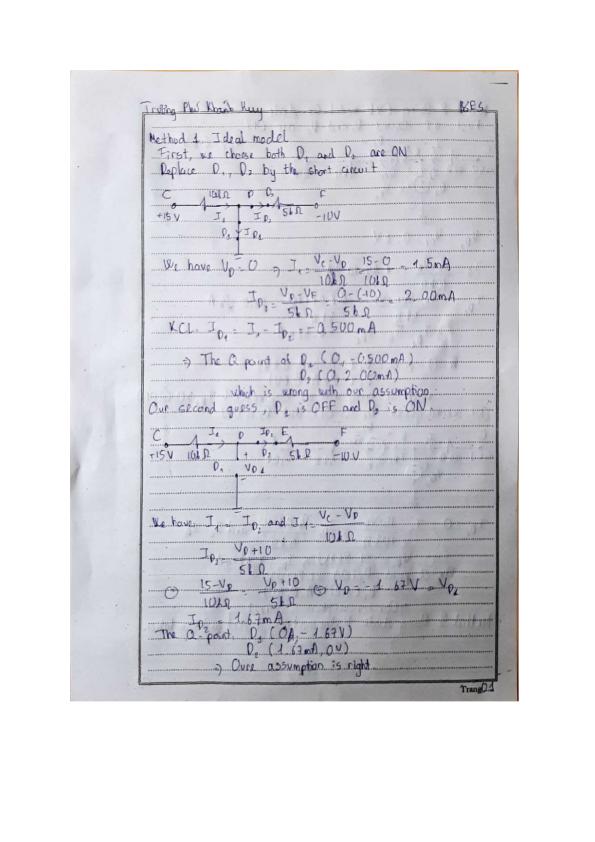 Trương Phú Khánh Huy
Method 1. Ideal model
First, we choose both D₁ and D₂ are ON
Replace D₁, D₂ by the short circuit
C 10kΩ D D₂ F
+15V I₁ I_D₂ 5kΩ -10V
D₁ I_D₁
We have V_D = 0 ⇒ I₁ = (V_C - V_D)/10kΩ = (15 - 0)/10kΩ = 1.5mA
I_D₂ = (V_D - V_F)/5kΩ = (0 - (-10))/5kΩ = 2.00mA
KCL. I_D₁ = I₁ - I_D₂ = -0,500mA
⇒ The Q point of D₁ (0, -0.500mA)
D₂ (0, 2.00mA)
which is wrong with our assumption
Our second guess, D₁ is OFF and D₂ is ON.
C I₁ D I_D₂ E F
+15V 10kΩ + D₂ 5kΩ -10V
D₁ - V_D₁
We have I₁ = I_D₂ and I₁ = (V_C - V_D)/10kΩ
I_D₂ = (V_D + 10)/5kΩ
⇔ (15 - V_D)/10kΩ = (V_D + 10)/5kΩ ⇔ V_D = -1.67V = V_D₁
I_D₂ = 1.67mA
The Q-point. D₁ (0A, -1.67V)
D₂ (1.67mA, 0V)
⇒ Oure assumption is right
Trang 01